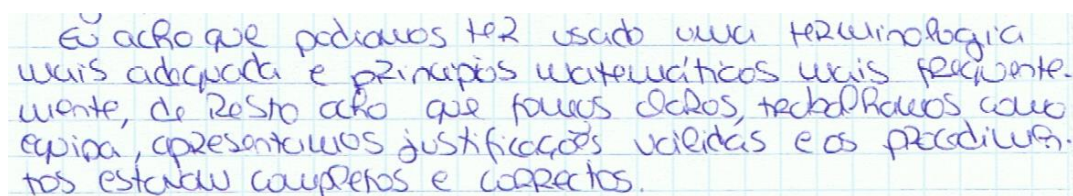 Eu acho que podiamos ter usado uma terminologia
mais adequada e principios matemáticos mais frequente-
mente, de resto acho que fomos claros, trabalhamos como
equipa, apresentamos justificações válidas e os procedimen-
tos estavam completos e correctos.